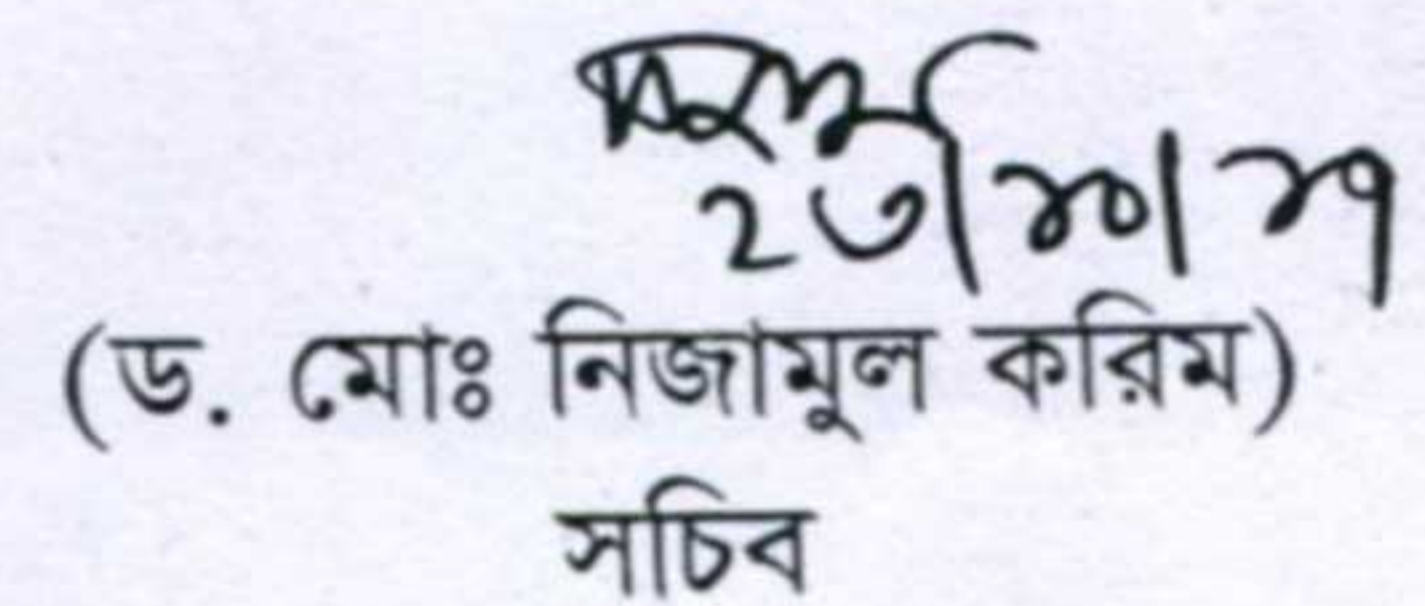 ২৩/১০/১৭
(ড. মোঃ নিজামুল করিম)
সচিব